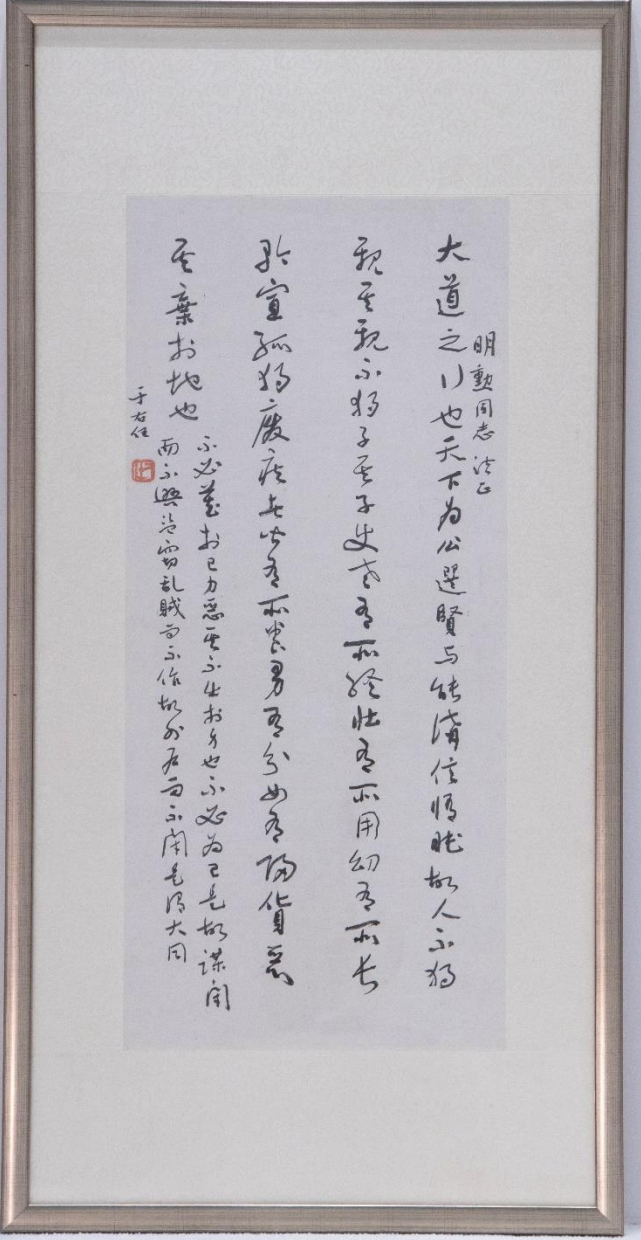 明勳同志法正
大道之行也天下为公選賢与能講信脩睦故人不獨
親其親不獨子其子使老有所終壮有所用幼有所长
矜寡孤獨廢疾者皆有所養男有分女有歸貨惡
其棄於地也
不必藏於己力惡其不出於身也不必为己是故謀闭
而不興盗窃乱賊而不作故外户而不闭是谓大同
于右任